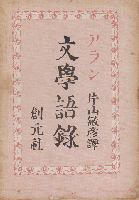 アラン
文學語錄
片山敏彥譯
創元社